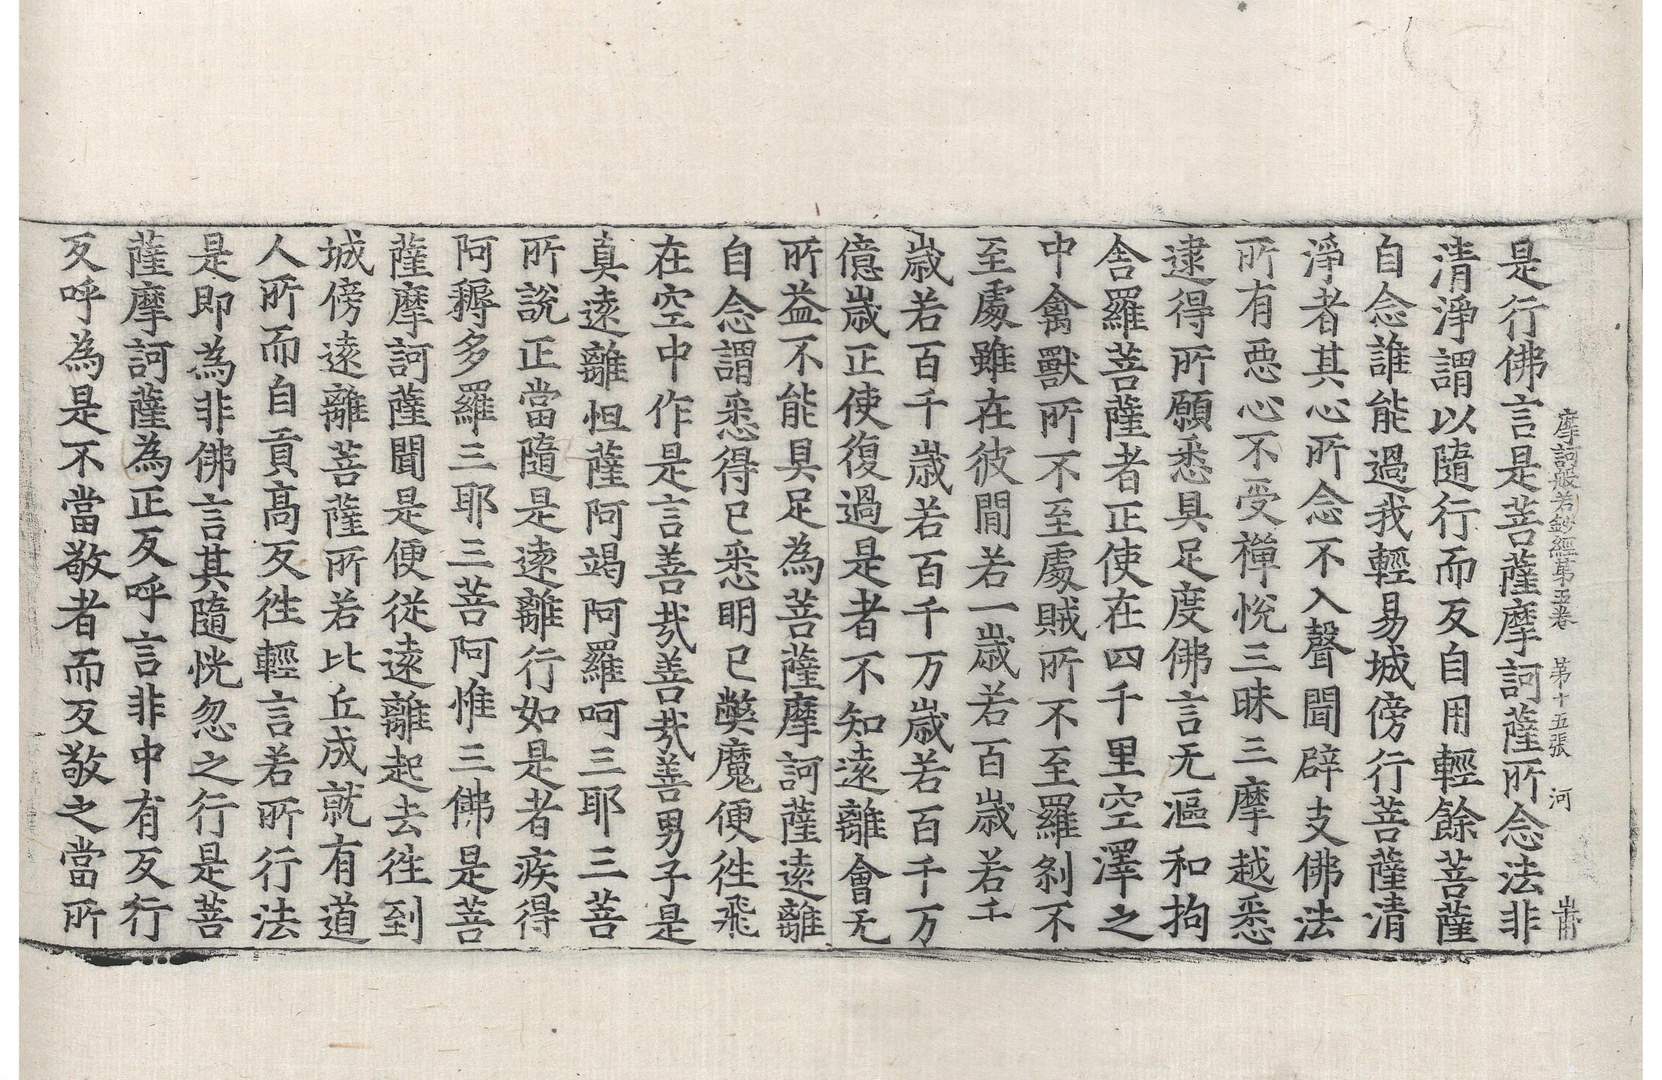 摩訶般若鈔經第五卷　第十五張　河
是行佛言是菩薩摩訶薩所念法非
清淨謂以隨行而反自用輕餘菩薩
自念誰能過我輕易城傍行菩薩清
淨者其心所念不入聲聞辟支佛法
所有惡心不受禪悅三昧三摩越悉
逮得所願悉具足度佛言无漚和拘
舎羅菩薩者正使在四千里空澤之
中禽獸所不至處賊所不至羅剎不
至處雖在彼閒若一歲若百歲若千
歲若百千歲若百千万歲若百千万
億歲正使復過是者不知遠離會无
所益不能具足為菩薩摩訶薩遠離
自念謂悉得已悉明已獘魔便徃飛
在空中作是言善㢤善㢤善男子是
真遠離怛薩阿竭阿羅呵三耶三菩
所說正當隨是遠離行如是者疾得
阿耨多羅三耶三菩阿惟三佛是菩
薩摩訶薩聞是便從遠離起去徃到
城傍遠離菩薩所若比丘成就有道
人所而自貢高反徃輕言若所行法
是即為非佛言其隨恍忽之行是菩
薩摩訶薩為正反呼言非中有反行
反呼為是不當敬者而反敬之當所